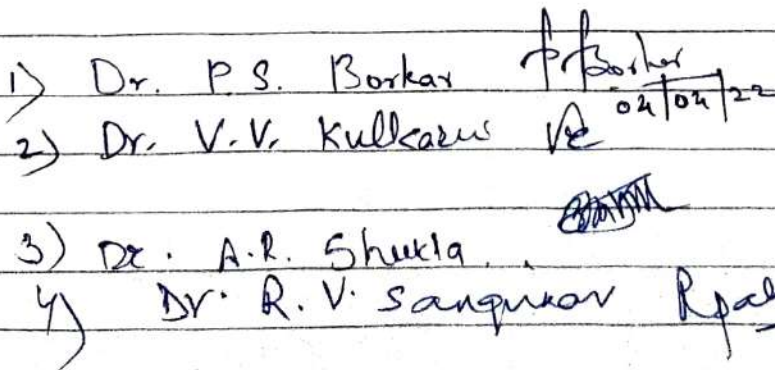 1) Dr. P.S. Borkar PBorkar
04/04/22
2) Dr. V.V. Kulkarni
3) Dr. A.R. Shukla
4) Dr. R.V. Rpal